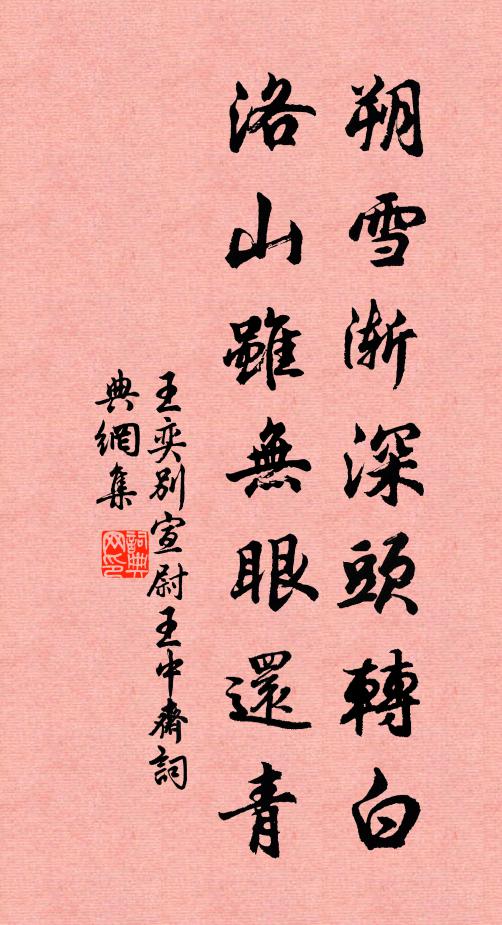 朔雪渐深頭轉白
洛山雖無眼還青
王奕別宣尉王中齋詞
典網集
詞典
网印